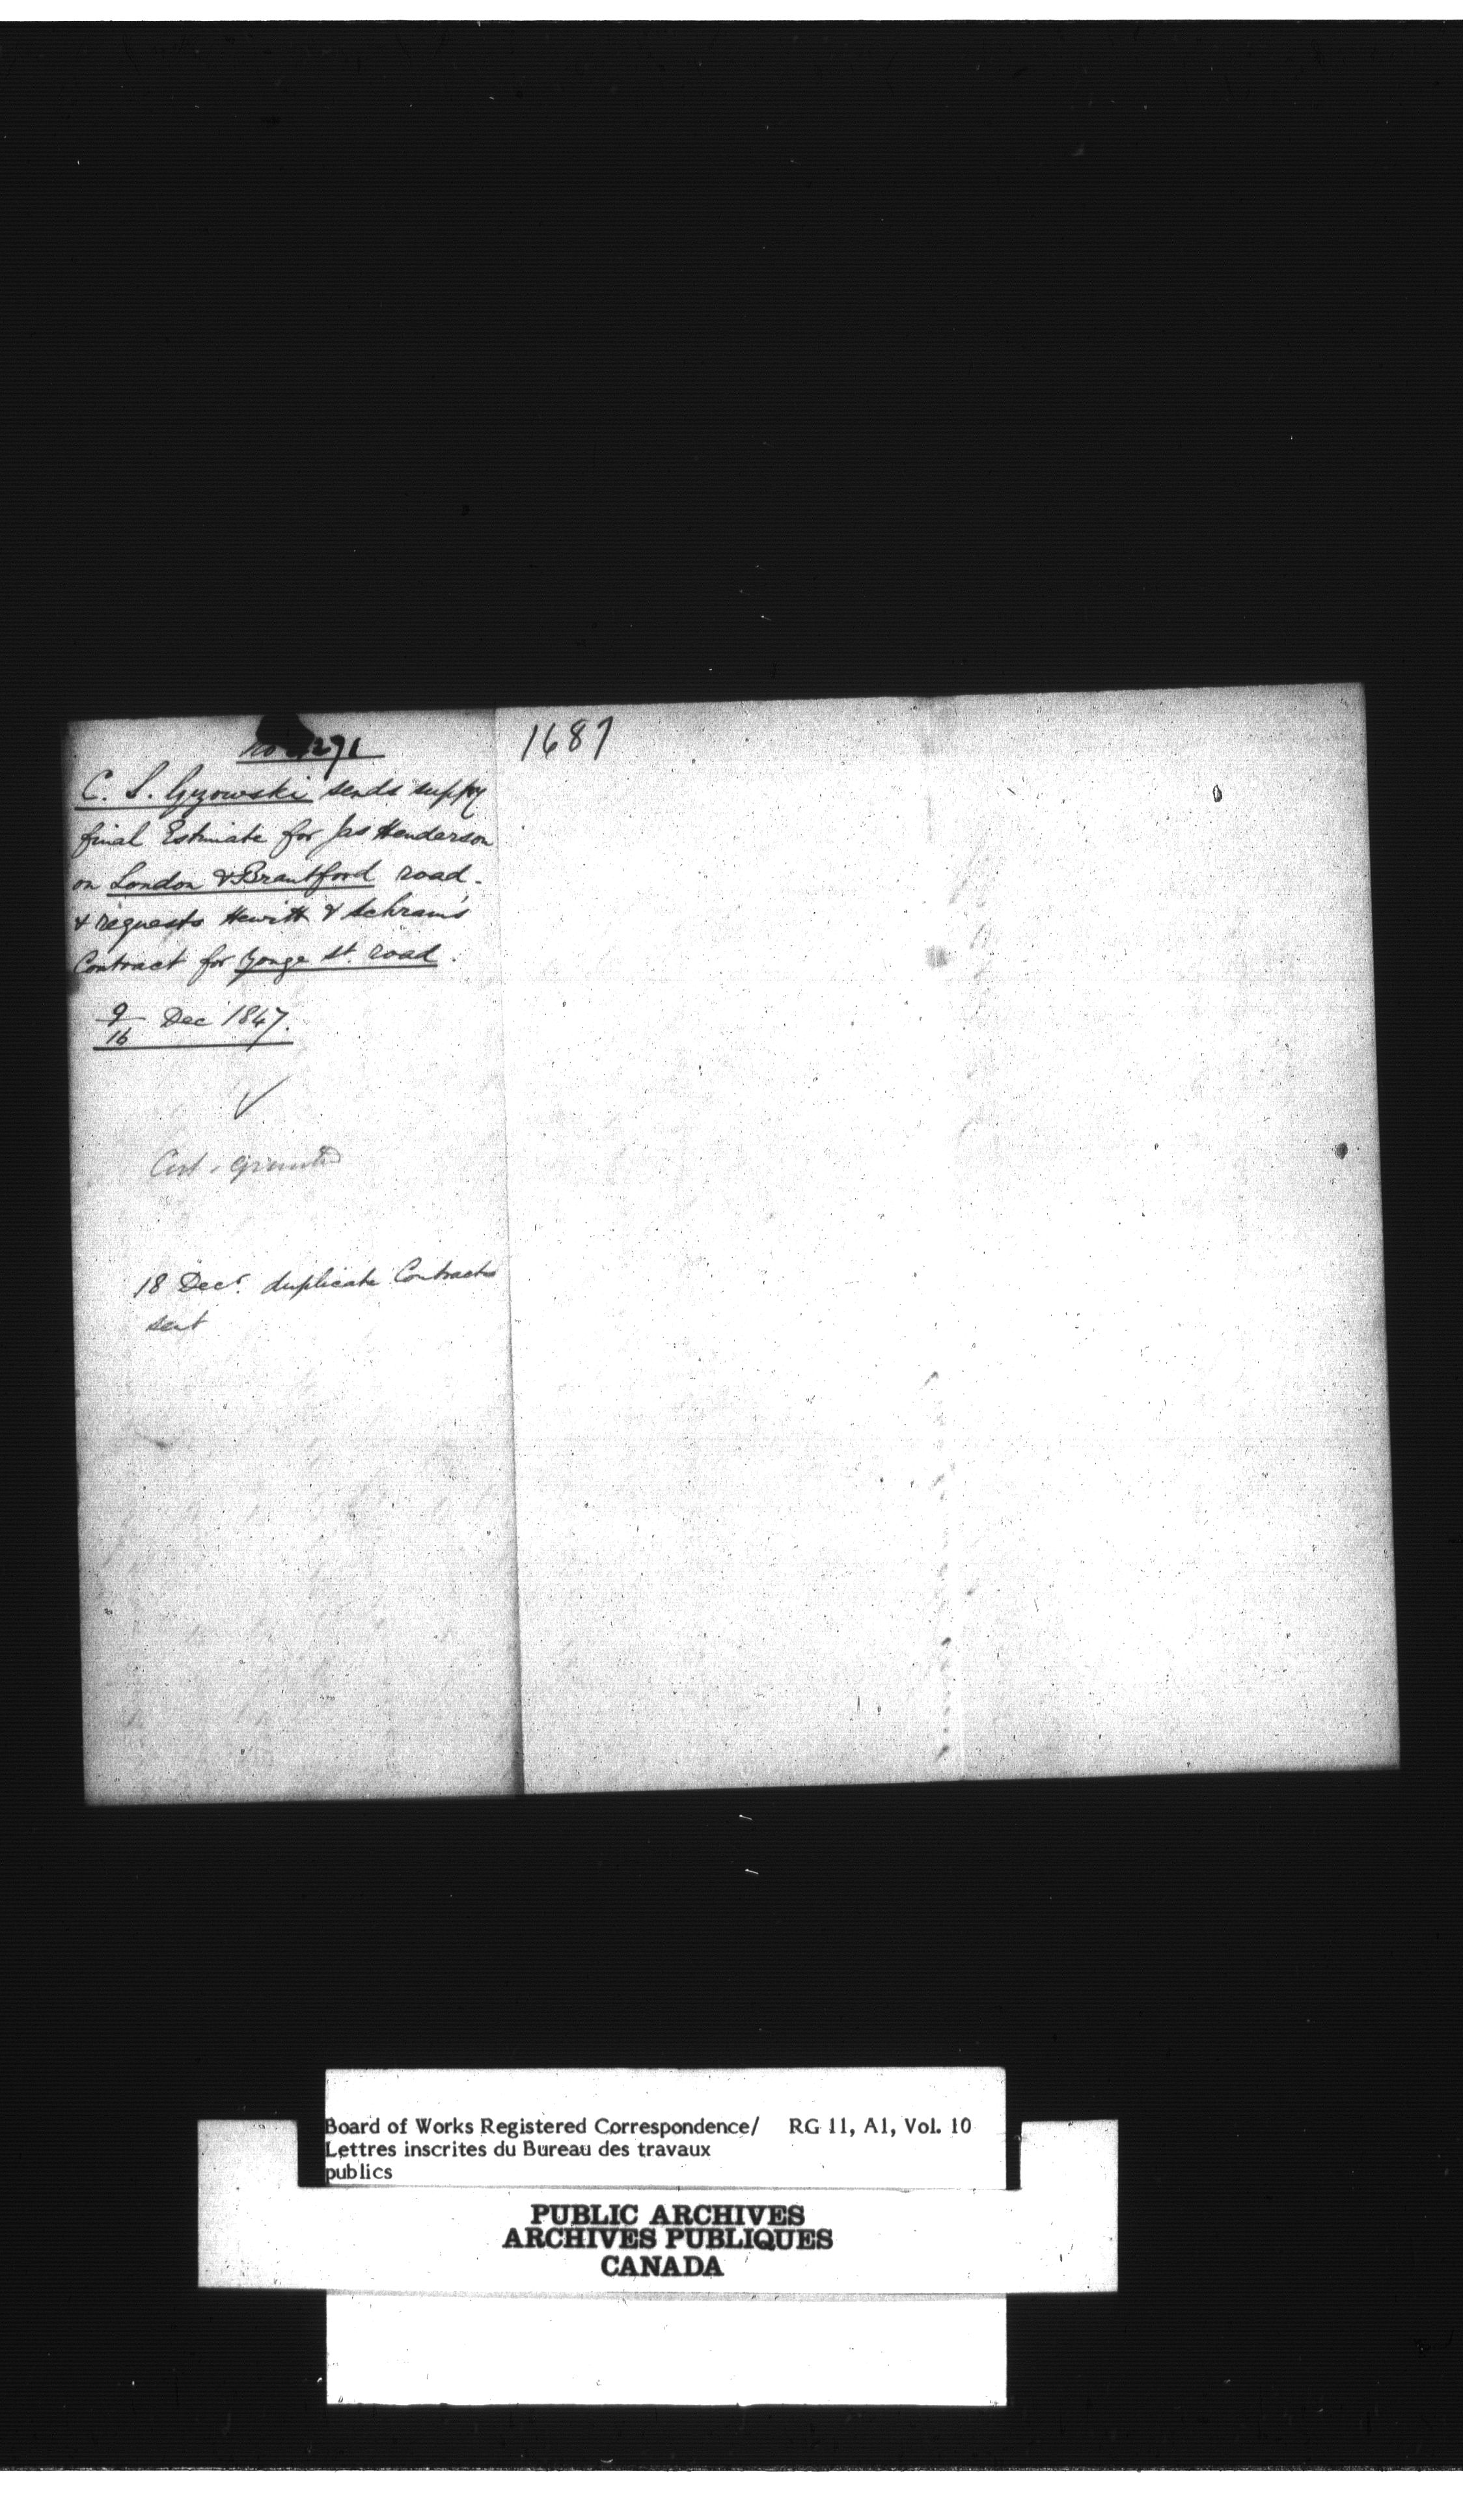 1687
C. S. Gzowski sends supply
final Estimate for Jas Henderson
on London & Brantford road.
& requests Hewitt & Schram's
Contract for Yonge St. road.
9/16 Dec 1847.
✓
Cert. granted
18 Decr. duplicate Contracts
sent
Board of Works Registered Correspondence/ RG 11, A1, Vol. 10
Lettres inscrites du Bureau des travaux
publics
PUBLIC ARCHIVES
ARCHIVES PUBLIQUES
CANADA